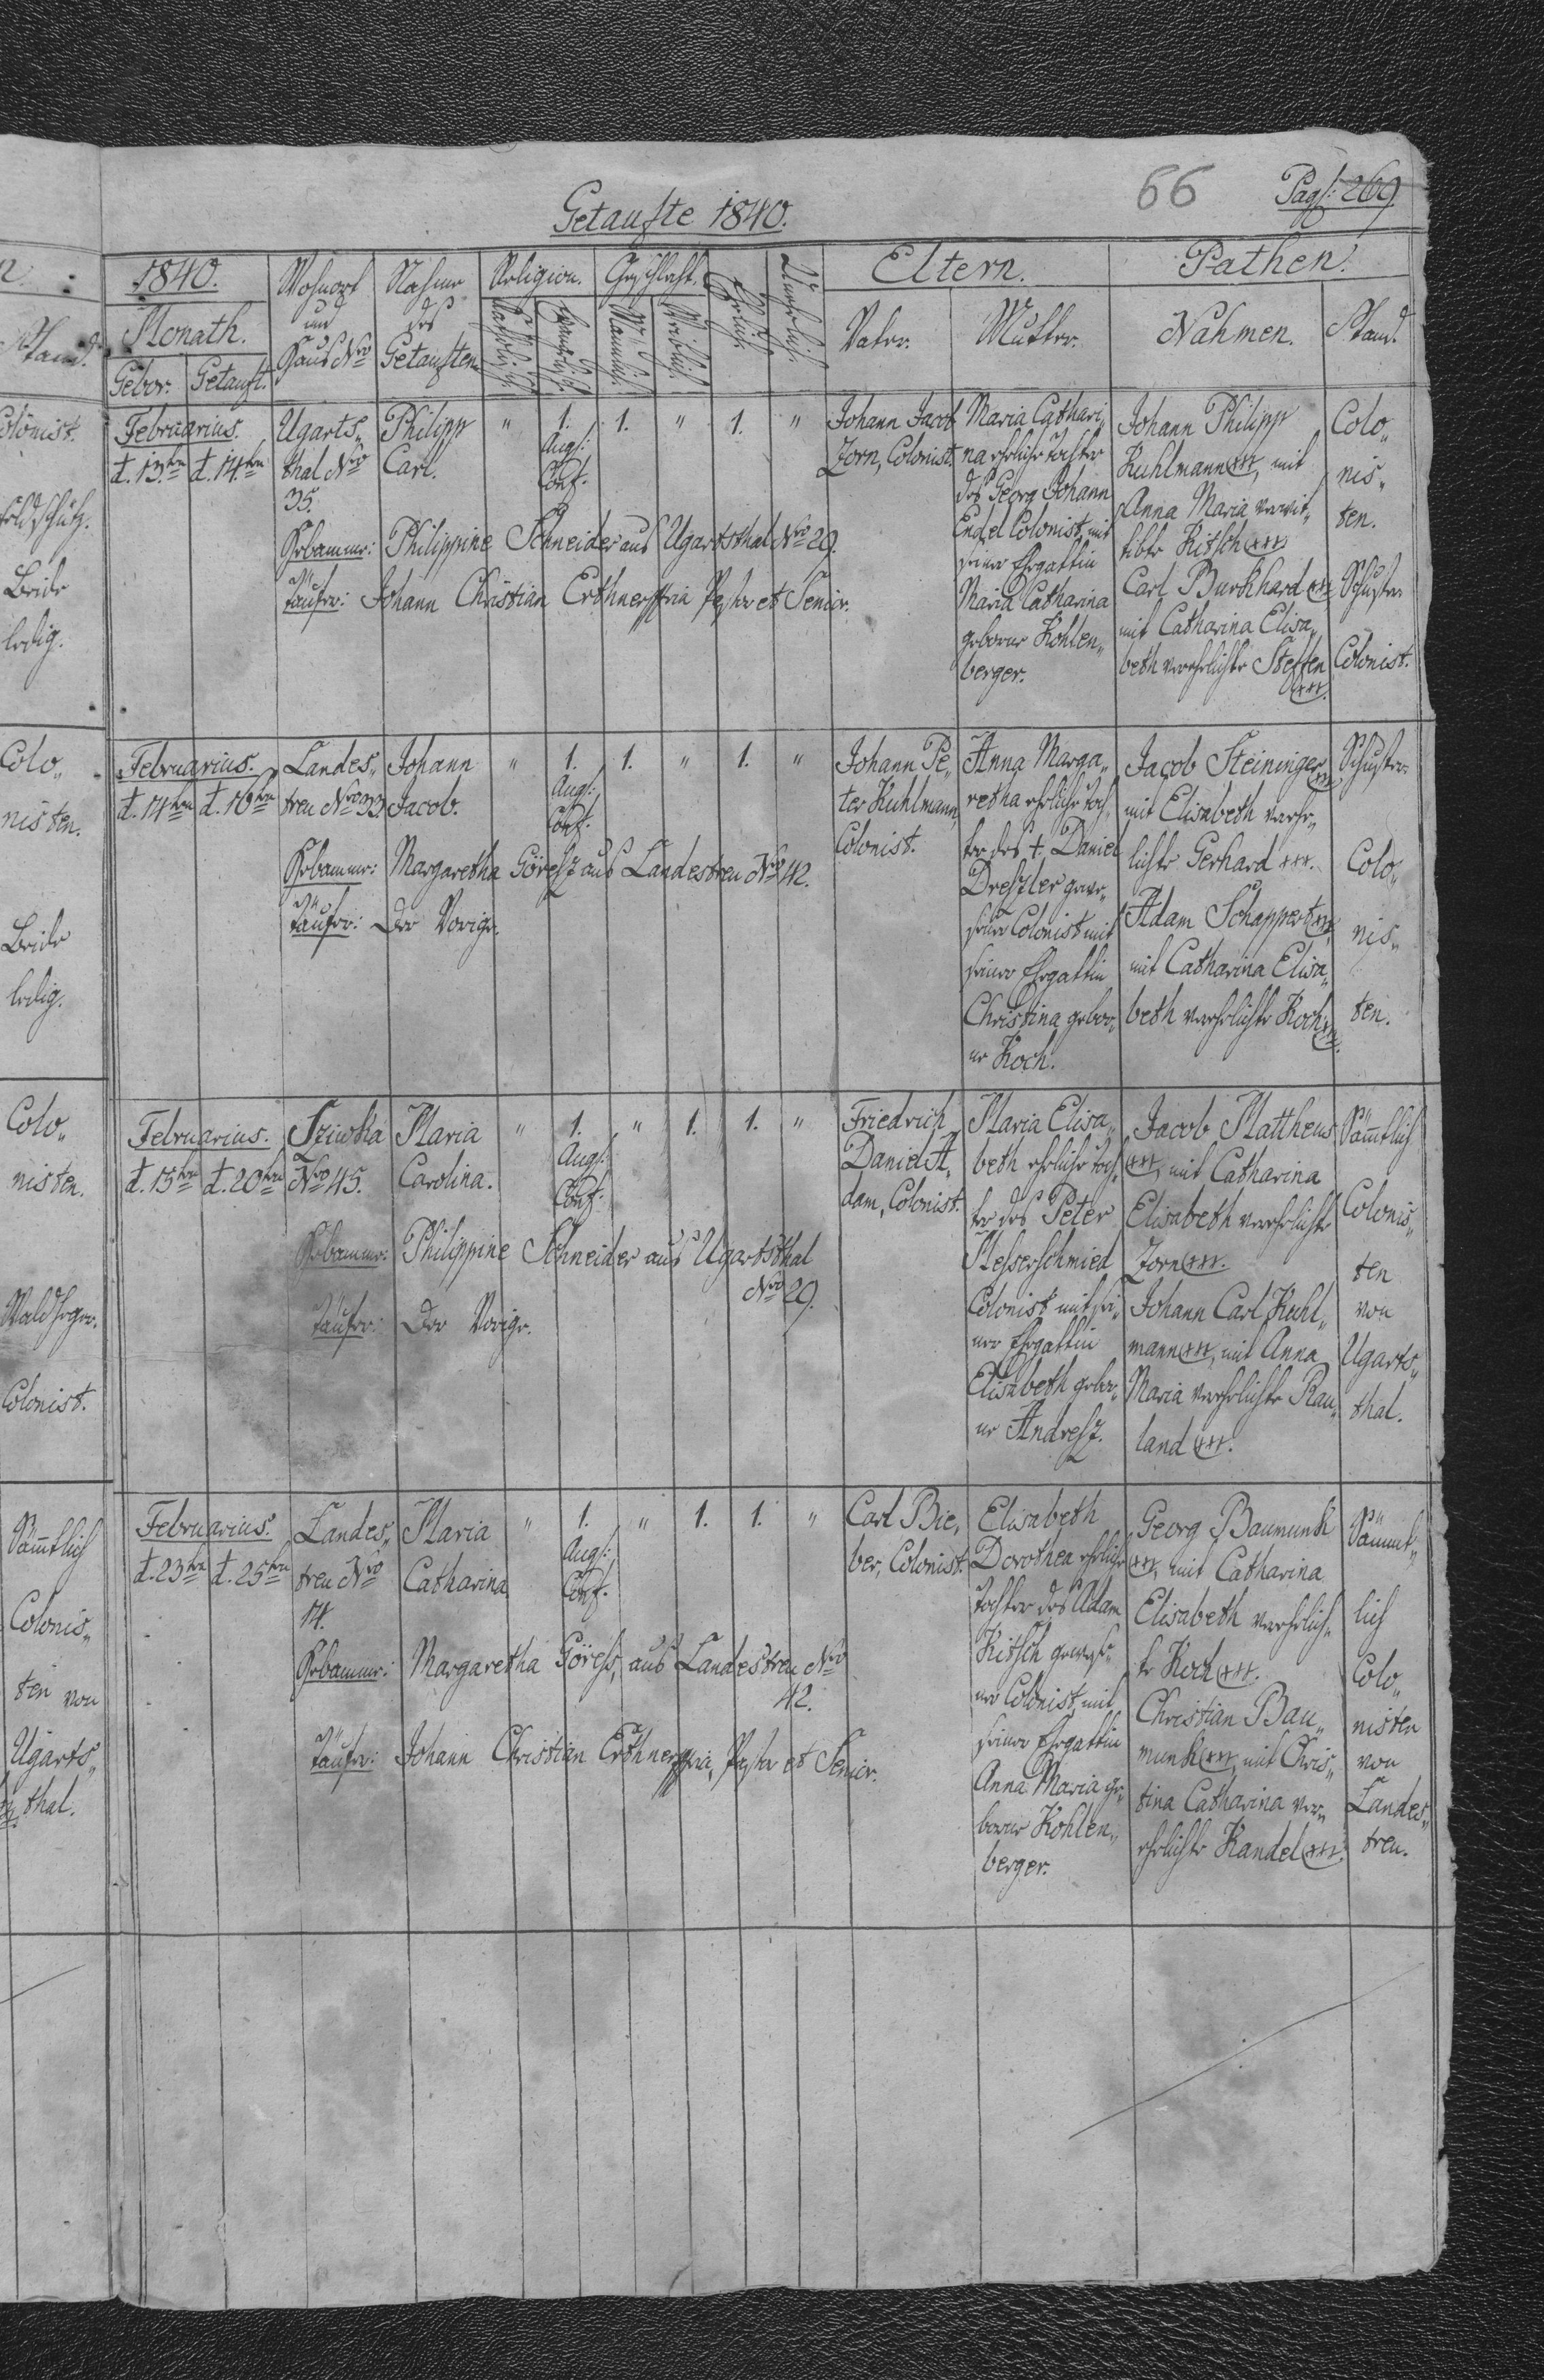 66
Pag: 269
Getaufte 1840.
1840.
Monath.
Gebor. Getauft.
Wohnort
und
Haus Nro
Nahme
des
Getauften
Religion.
Katholisch
Geschlecht.
Mannlich
Weiblich
Ehelich
Unehelich
Eltern.
Vater. Mutter.
Pathen.
Nahmen. Stand.
Februarius.
d. 13ten d. 14ten
Ugarts„
thal Nro
35.
Philipp
Carl.
" 1. 1. " 1. "
Augs:
Conf.
Johann Jacob
Zorn, Colonist.
Maria Cathari„
na eheliche Tochter
des Georg Johann
Engel Colonist, mit
seiner Ehegattin
Maria Catharina
geborne Kohlen„
berger.
Johann Philipp
Kuhlmann xxx, mit
Anna Maria verwit„
tibte Kitsch xxx.
Carl Burkhard xxx
mit Catharina Elisa„
beth verehlichte Steffen
xxx.
Colo„
nis„
ten.
Schuster
Colonist.
Hebamme: Philippine Schneider aus Ugartsthal Nro 29.
Täufer: Johann Christian Erthner Pastor et Senior.
Februarius.
d. 14ten d. 16ten
Landes„
treu Nro 33.
Johann
Jacob.
" 1. 1. " 1. "
Augs:
Conf.
Johann Pe„
ter Kuhlmann,
Colonist.
Anna Marga„
retha eheliche Toch„
ter des †. Daniel
Dreszler gewe„
sener Colonist mit
seiner Ehegattin
Christina gebor„
ne Koch.
Jacob Steininger
xxx
mit Elisabeth vereh„
lichte Gerhard xxx.
Adam Schappert xxx,
mit Catharina Elisa„
beth verehlichte Koch xxx.
Schuster
Colo„
nis„
ten.
Hebamme: Margaretha Göresz aus Landestreu Nro 42.
Täufer: Der Vorige.
Februarius.
d. 15ten d. 20ten
Sziwka
Nro 45.
Maria
Carolina.
" 1. " 1. 1. "
Augs:
Conf.
Friedrich
Daniel A„
dam, Colonist.
Maria Elisa„
beth eheliche Toch„
ter des Peter
Messerschmied
Colonist mit sei„
ner Ehegattin
Elisabeth gebor„
ne Andresz.
Jacob Mattheus
xxx, mit Catharina
Elisabeth verehlichte
Zorn xxx.
Johann Carl Kuhl„
mann xxx, mit Anna
Maria verehlichte Rau„
land xxx.
Sämtlich
Colonis„
ten
von
Ugarts„
thal.
Hebamme: Philippine Schneider aus Ugartsthal
Nro 29.
Täufer: Der Vorige.
Februarius.
d. 23ten d. 25ten
Landes„
treu Nro
14.
Maria
Catharina
" 1. " 1. 1. "
Augs:
Conf.
Carl Bie„
ber, Colonist.
Elisabeth
Dorothea eheliche
Tochter des Adam
Kitsch gewese„
ner Colonist, mit
seiner Ehegattin
Anna Maria ge„
borne Kohlen„
berger.
Georg Baumunk
xxx, mit Catharina
Elisabeth verehlich„
te Koch xxx.
Christian Bau„
munk xxx, mit Chris„
tina Catharina ver„
ehlichte Kandel xxx.
Sämmt„
lich
Colo„
nisten
von
Landes„
treu.
Hebamme: Margaretha Göresz, aus Landestreu Nro
42.
Täufer: Johann Christian Erthner Pastor et Senior.
Stand.
Colonist.
Feldschütz.
Beide
ledig.
Colo„
nisten.
Beide
ledig.
Colo„
nisten.
Waldheger.
Colonist.
Sämtlich
Colonis„
ten von
Ugarts„
thal.